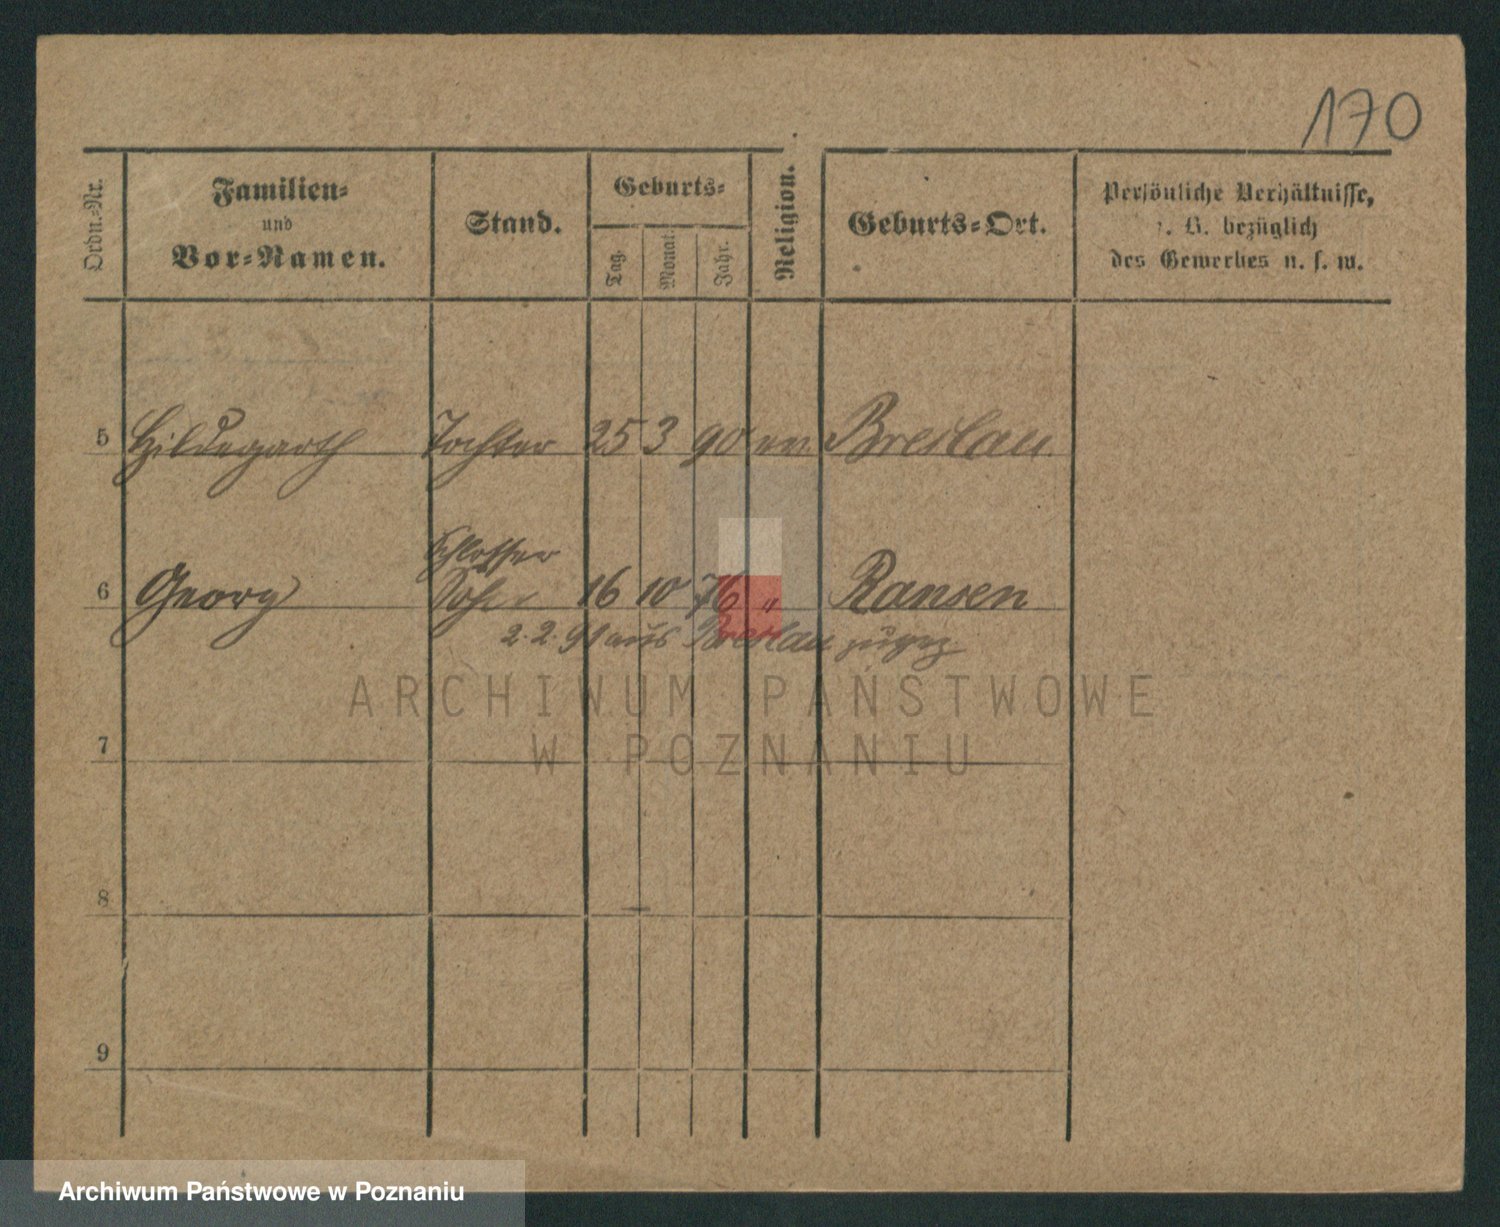 170
Ordn.-Nr.
Familien-
und
Vor-Namen.
Stand.
Geburts-
Tag.
Monat.
Jahr.
Religion.
Geburts-Ort.
Persönliche Verhältnisse,
z. B. bezüglich
des Gewerbes u. s. w.
5 Hildegarth Tochter 25 3 90 ev. Breslau.
Schlosser
6 Georg Sohn 16 10 76 " Ransen
2.2.91 aus Breslau zugez
ARCHIWUM PAŃSTWOWE
7
W POZNANIU
8
9
Archiwum Państwowe w Poznaniu